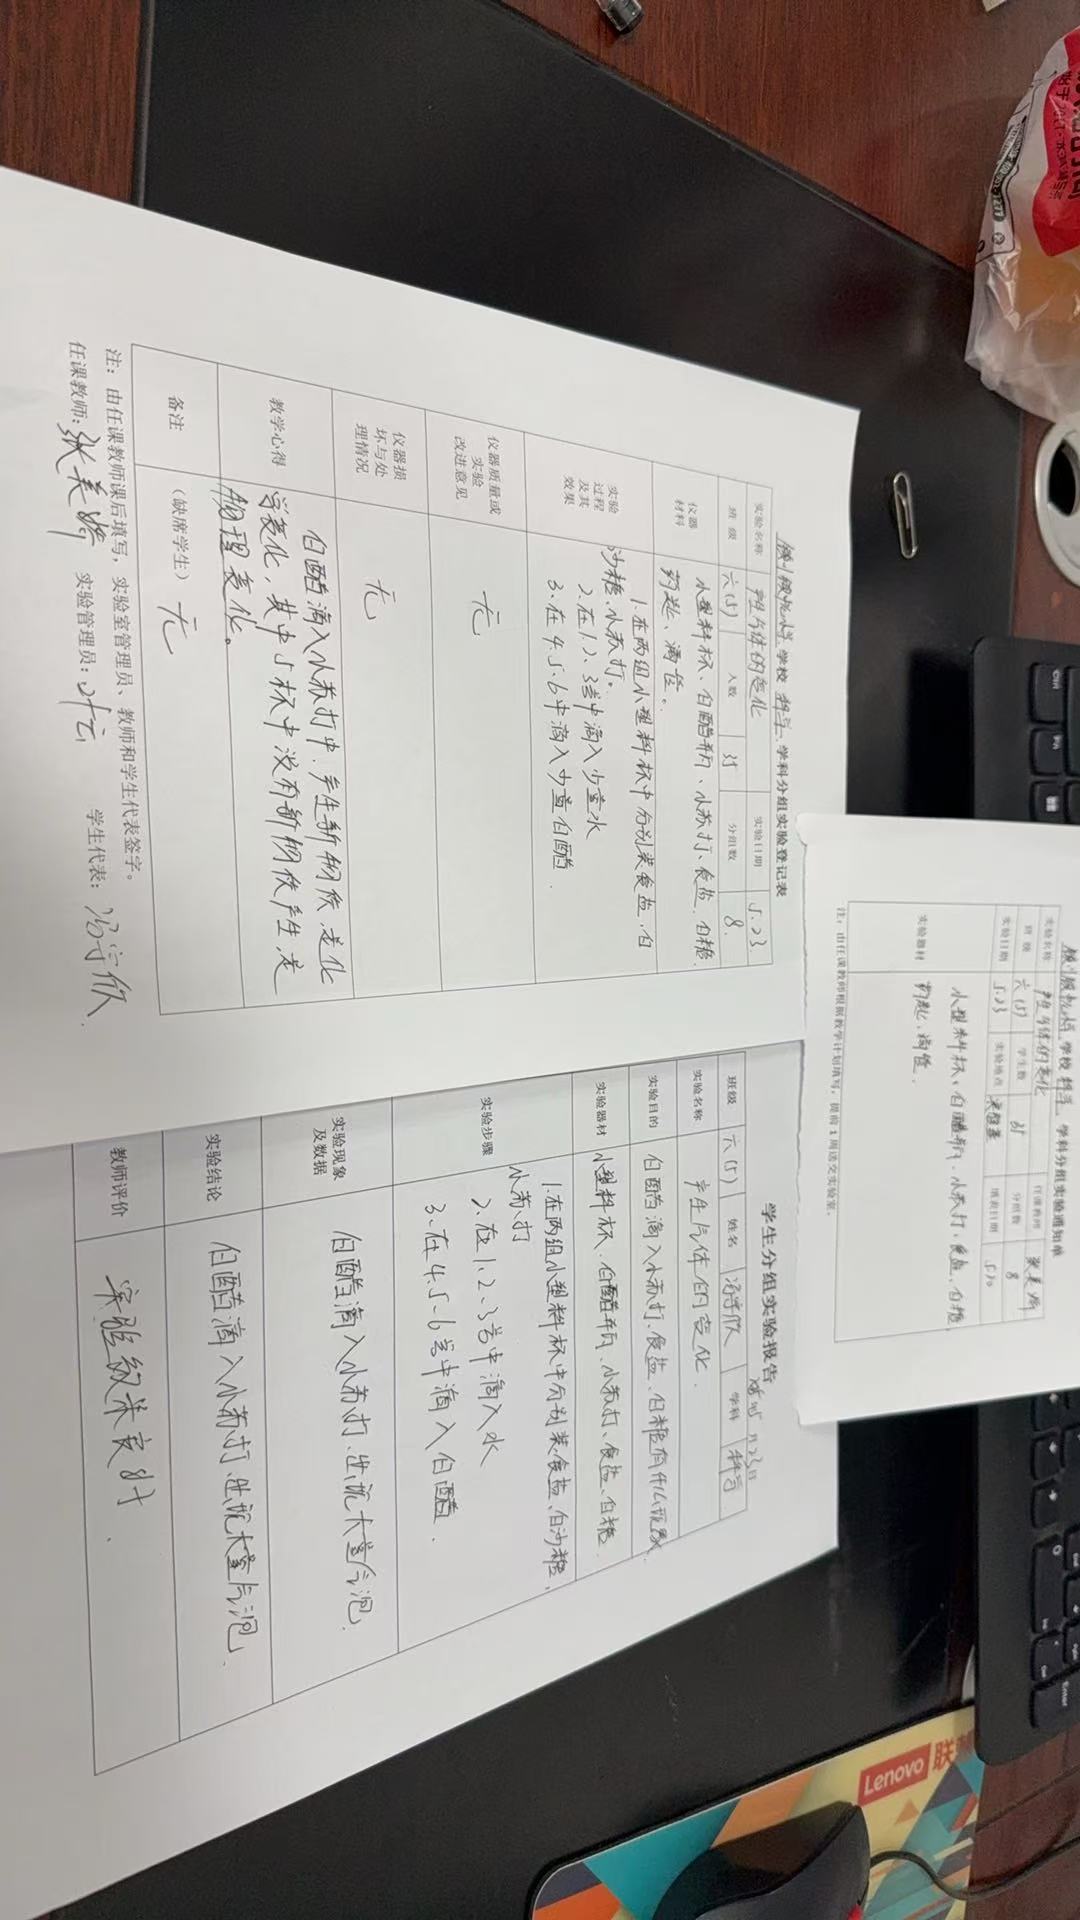 学校 科学 学科分组实验登记表
实验名称 产生气体的变化 实验日期 5.23
班 级 六(5) 人数 35 分组数 8
仪器材料 小塑料杯、白醋瓶、小苏打、食盐、白糖
药匙、滴管。
实验过程及其效果 1.在两组小塑料杯中分别装食盐、白
沙糖、小苏打。
2.在1、2、3号中滴入少量水
3.在4.5.6中滴入少量白醋
仪器质量或实验改进意见 无
仪器损坏与处理情况 无
教学心得 白醋滴入小苏打中,产生新物质是化
学变化,其中5杯中没有新物质产生,是
物理变化。
备注 (缺席学生) 无
注:由任课教师课后填写,实验室管理员、教师和学生代表签字。
任课教师:张美 实验管理员:叶云 学生代表:冯
学校 科学 学科分组实验通知单
实验名称 产生气体的变化 任课教师 张美
班 级 六(5) 学生数 35 分组数 8
实验日期 5.23 实验地点 实验室 填表日期 5.20
实验器材 小塑料杯、白醋瓶、小苏打、食盐、白糖
药匙、滴管.
注:由任课教师根据教学计划填写,提前1周送交实验室。
学生分组实验报告
5月23日
班级 六(5) 姓名 冯 学科 科学
实验名称 产生气体的变化
实验目的 白醋滴入小苏打、食盐、白糖有什么现象
实验器材 小塑料杯、白醋瓶、小苏打、食盐、白糖
实验步骤 1.在两组小塑料杯中分别装食盐、白沙糖、
小苏打
2.在1.2.3号中滴入水
3.在4.5.6号中滴入白醋.
实验现象及数据 白醋滴入小苏打、出现大量气泡.
实验结论 白醋滴入小苏打、出现大量气泡.
教师评价 实验效果良好.
Lenovo 联想
Ctrl
Fn
Enter